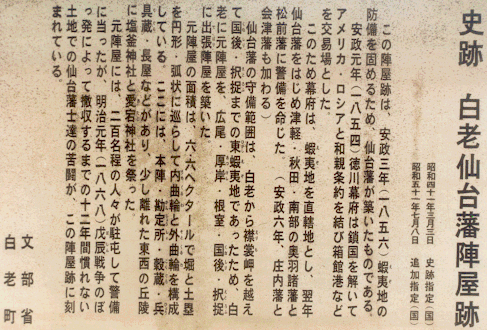 史跡 白老仙台藩陣屋跡
昭和四十一年三月三日 史跡指定(国)
昭和五十一年七月八日 追加指定(国)
この陣屋跡は、安政三年(一八五六)蝦夷地の
防備を固めるため、仙台藩が築いたものである。
安政元年(一八五四)徳川幕府は鎖国を解いて
アメリカ・ロシアと和親条約を結び箱館港など
を交易場とした。
このため幕府は、蝦夷地を直轄地とし、翌年
仙台藩をはじめ津軽・秋田・南部の奥羽諸藩と
松前藩に警備を命じた(安政六年、庄内藩と
会津藩も加わる)
仙台藩の守備範囲は、白老から襟裳岬を越え
て国後・択捉までの東蝦夷地であったため、白
老に元陣屋を、広尾・厚岸・根室・国後・択捉
に出張陣屋を築いた
元陣屋の面積は、六・六ヘクタールで堀と土塁
を円形・弧状に巡らして内曲輪と外曲輪を構成
している。ここには、本陣・勘定所・穀蔵・兵
具蔵・長屋などがあり、少し離れた東西の丘陵
に塩釜神社と愛宕神社を祭った
元陣屋には、二百名程の人々が駐屯して警備
に当ったが、明治元年(一八六八)戊辰戦争のぼ
っ発によって撤収するまでの十二年間慣れない
土地での仙台藩士達の苦闘が、この陣屋跡に刻
まれている。
文部省
白老町